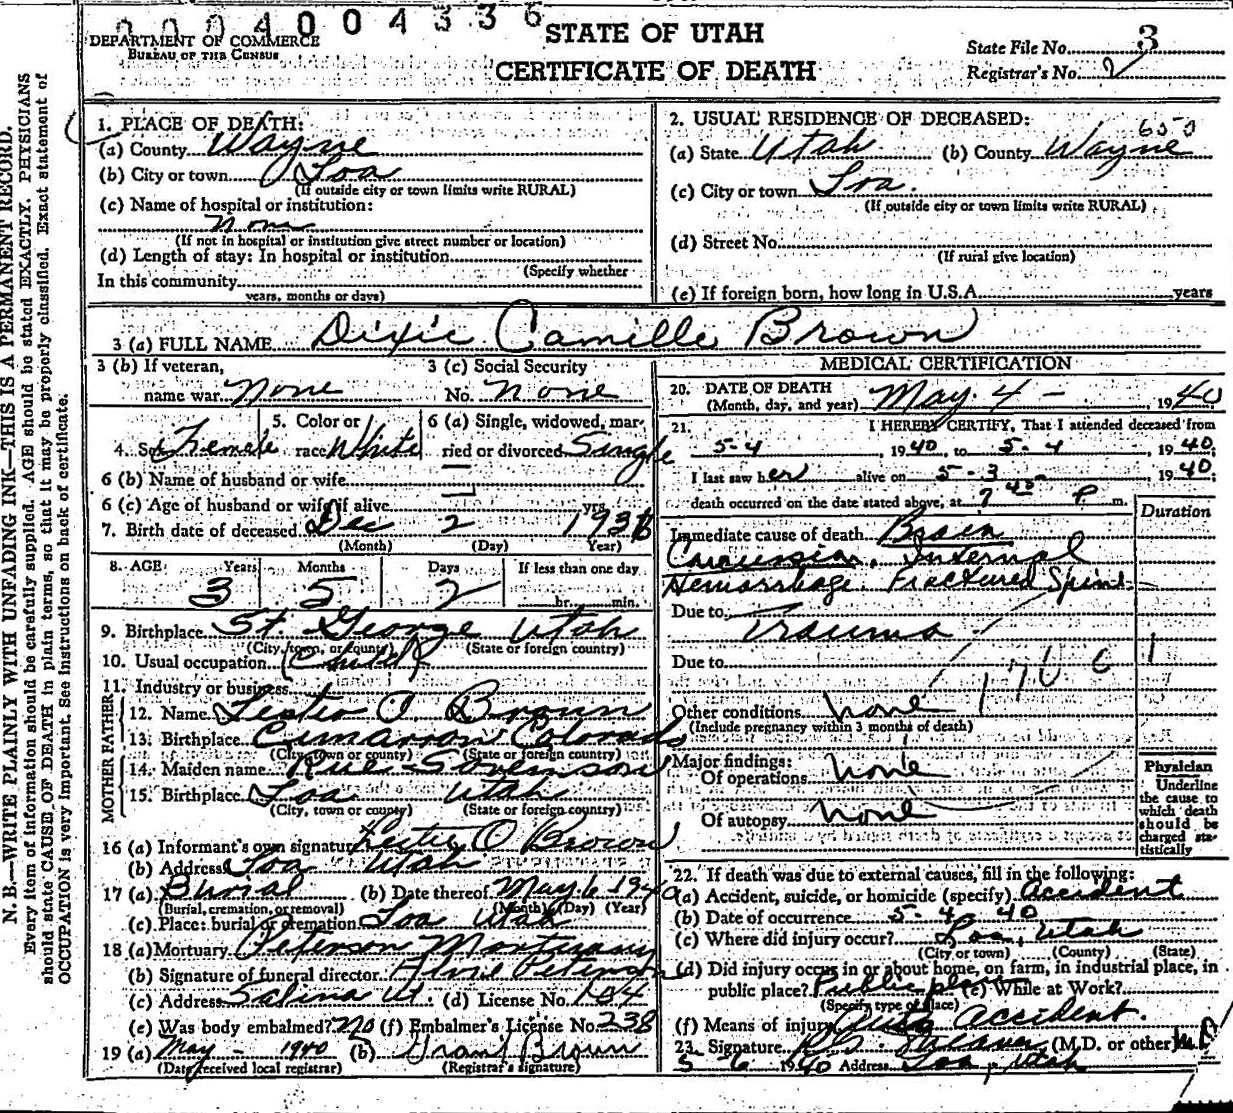 0004004336
STATE OF UTAH
DEPARTMENT OF COMMERCE
BUREAU OF THE CENSUS
CERTIFICATE OF DEATH
State File No. 3
Registrar's No. 2
N. B.—WRITE PLAINLY WITH UNFADING INK—THIS IS A PERMANENT RECORD.
Every item of information should be carefully supplied. AGE should be stated EXACTLY. PHYSICIANS
should state CAUSE OF DEATH in plain terms, so that it may be properly classified. Exact statement of
OCCUPATION is very important. See instructions on back of certificate.
1. PLACE OF DEATH:
(a) County Wayne
(b) City or town Loa
(If outside city or town limits write RURAL)
(c) Name of hospital or institution:
None
(If not in hospital or institution give street number or location)
(d) Length of stay: In hospital or institution
(Specify whether
In this community
years, months or days)
2. USUAL RESIDENCE OF DECEASED:
6550
(a) State Utah (b) County Wayne
(c) City or town Loa.
(If outside city or town limits write RURAL)
(d) Street No.
(If rural give location)
(e) If foreign born, how long in U.S.A. years
3 (a) FULL NAME Dixie Camille Brown
3 (b) If veteran, name war None
3 (c) Social Security No. none
4. Sex Female
5. Color or race White
6 (a) Single, widowed, married or divorced Single
6 (b) Name of husband or wife —
6 (c) Age of husband or wife if alive — yrs.
7. Birth date of deceased Dec 2 1936
(Month) (Day) Year)
8. AGE: Years Months Days If less than one day
3 5 2 hr. min.
9. Birthplace St. George Utah
(City, town, or county) (State or foreign country)
10. Usual occupation (Child)
11. Industry or business
FATHER
12. Name Lester O. Brown
13. Birthplace Cimarron Colorado
(City, town or county) (State or foreign country)
MOTHER
14. Maiden name Rue Stevenson
15. Birthplace Loa Utah
(City, town or county) (State or foreign country)
16 (a) Informant's own signature Lester O Brown
(b) Address Loa Utah
17 (a) Burial (b) Date thereof May 6 1940
(Burial, cremation, or removal) (Month) (Day) (Year)
(c) Place: burial or cremation Loa Utah
18 (a) Mortuary Peterson Mortuary
(b) Signature of funeral director Alvie Peterson
(c) Address Salina Ut. (d) License No. 104
(e) Was body embalmed? No (f) Embalmer's License No. 238
19 (a) May - 1940 (b) Grant Brown
(Date received local registrar) (Registrar's signature)
MEDICAL CERTIFICATION
20. DATE OF DEATH
(Month, day, and year) May 4 - 1940
21. I HEREBY CERTIFY, That I attended deceased from
5-4, 1940, to 5-4, 1940;
I last saw her alive on 5-3-, 1940;
death occurred on the date stated above, at 7 45 P. m.
Duration
Immediate cause of death Brain
Concussion, Internal
Hemorrhage. Fractured Spine
Due to Trauma
Due to
176 c 1
Other conditions None
(Include pregnancy within 3 months of death)
Major findings:
Of operations None
Of autopsy None
Physician
Underline
the cause to
which death
should be
charged sta-
tistically
22. If death was due to external causes, fill in the following:
(a) Accident, suicide, or homicide (specify) Accident
(b) Date of occurrence 5-4-40
(c) Where did injury occur? Loa, Utah
(City or town) (County) (State)
(d) Did injury occur in or about home, on farm, in industrial place, in
public place? Public place (e) While at Work?
(Specify type of place)
(f) Means of injury Auto Accident.
23. Signature (M.D. or other) M.D
5-6 1940 Address Loa, Utah